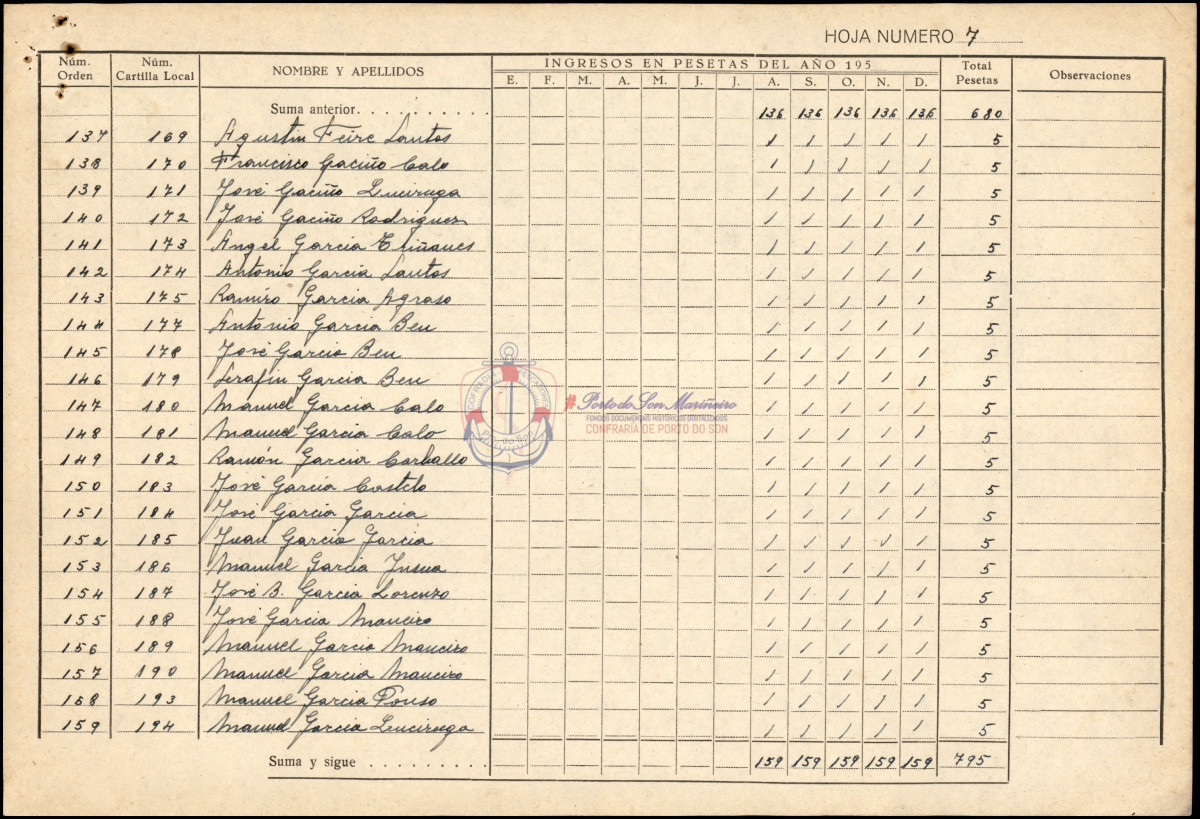 HOJA NUMERO 7
Núm. Orden Núm. Cartilla Local NOMBRE Y APELLIDOS INGRESOS EN PESETAS DEL AÑO 195 Total Pesetas Observaciones
E. F. M. A. M. J. J. A. S. O. N. D.
Suma anterior. . . . . . . . . 136 136 136 136 136 680
137 169 Agustin Feire Santos 1 1 1 1 1 5
138 170 Francisco Gaciño Calo 1 1 1 1 1 5
139 171 José Gaciño Luciruga 1 1 1 1 1 5
140 172 José Gaciño Rodriguez 1 1 1 1 1 5
141 173 Angel Garcia 1 1 1 1 1 5
142 174 Antonio Garcia Santos 1 1 1 1 1 5
143 175 Ramiro Garcia Agraso 1 1 1 1 1 5
144 177 Antonio Garcia Ben 1 1 1 1 1 5
145 178 José Garcia Ben 1 1 1 1 1 5
146 179 Serafin Garcia Ben 1 1 1 1 1 5
147 180 Manuel Garcia Calo 1 1 1 1 1 5
148 181 Manuel Garcia Calo 1 1 1 1 1 5
149 182 Ramón Garcia Carballo 1 1 1 1 1 5
150 183 José Garcia Castelo 1 1 1 1 1 5
151 184 José Garcia Garcia 1 1 1 1 1 5
152 185 Juan Garcia Garcia 1 1 1 1 1 5
153 186 Manuel Garcia Insua 1 1 1 1 1 5
154 187 José B. Garcia Lorenzo 1 1 1 1 1 5
155 188 José Garcia Maneiro 1 1 1 1 1 5
156 189 Manuel Garcia Maneiro 1 1 1 1 1 5
157 190 Manuel Garcia Maneiro 1 1 1 1 1 5
158 193 Manuel Garcia Pouso 1 1 1 1 1 5
159 194 Manuel Garcia Luciruga 1 1 1 1 1 5
Suma y sigue . . . . . . . . . 159 159 159 159 159 795
#Porto do Son Mariñeiro
FONDOS DOCUMENTAIS HISTÓRICOS DIXITALIZADOS
CONFRARÍA DE PORTO DO SON